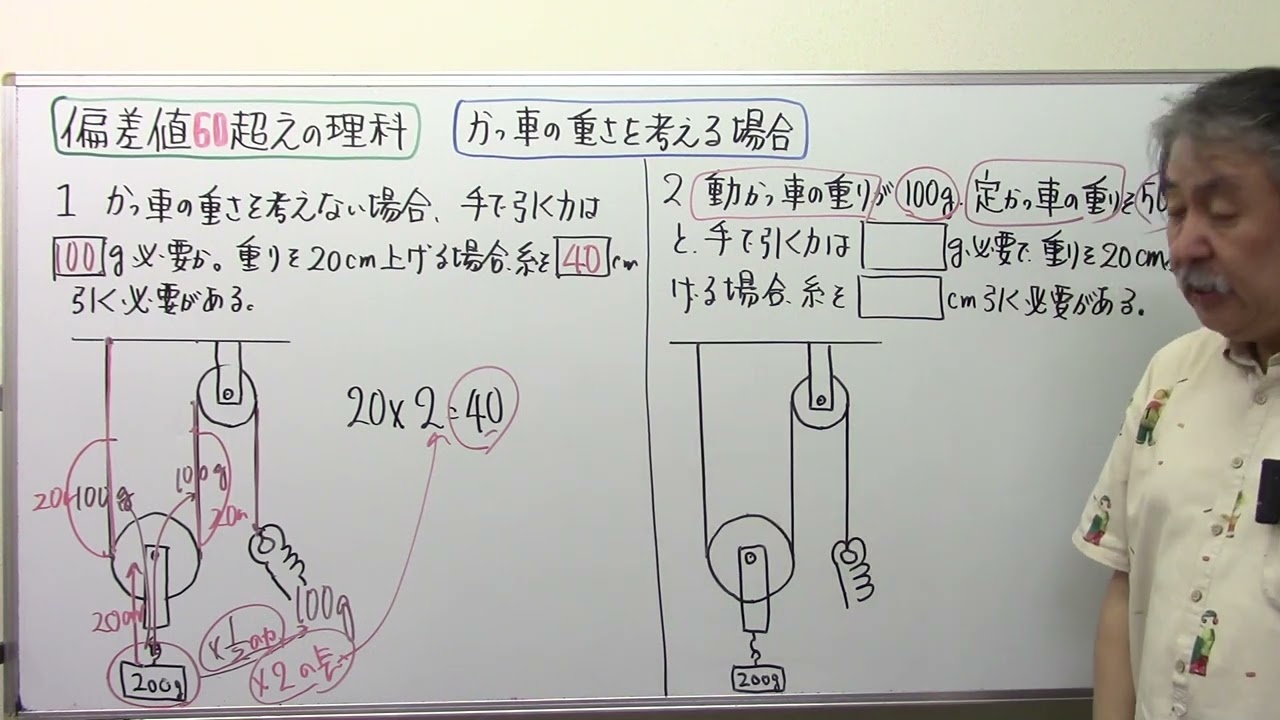 偏差値60超えの理科
かっ車の重さを考える場合
1 かっ車の重さを考えない場合、手で引く力は
100g必要か。重りを20cm上げる場合、糸を40cm
引く必要がある。
2 動かっ車の重りが100g、定かっ車の重りを50
と、手で引く力は g必要で、重りを20cm
げる場合、糸を cm引く必要がある。
20×2=40
100g
100g
20cm
20cm
100g
×1/2
200g
200g